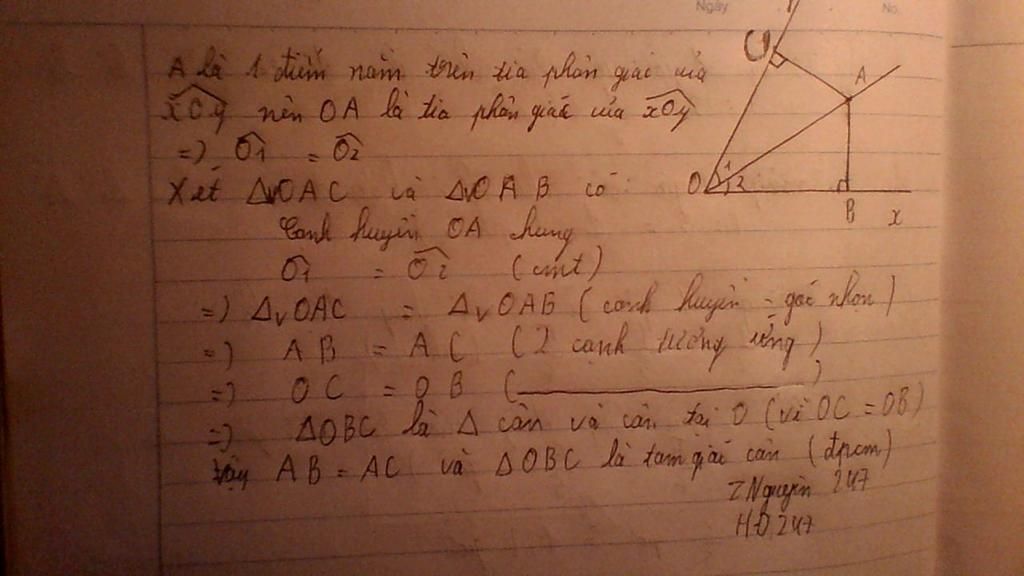 Ngày
No.
A là 1 điểm nằm trên tia phân giác của
xOy nên OA là tia phân giác của xOy
=) O1 = O2
Xét ΔvOAC và ΔvOAB có
Canh huyền OA chung
O1 = O2 (cmt)
=) ΔvOAC = ΔvOAB (canh huyền - góc nhọn)
=) AB = AC (2 canh tương ứng)
=) OC = OB (
)
=) ΔOBC là Δ cân và cân tại O (vì OC = OB)
Vậy AB = AC và ΔOBC là tam giác cân (đpcm)
ZNguyễn 247
HĐ 247
A
O
1
2
B
x